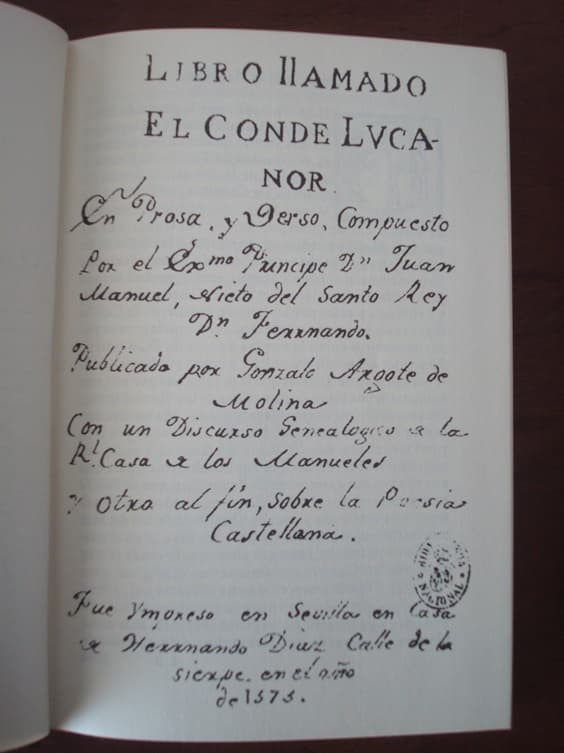 LIBRO llAMADO
EL CONDE LVCA-
NOR
En Prosa, y Verso, Compuesto
Por el Exmo Principe Dn Juan
Manuel, Nieto del Santo Rey
Dn Ferrnando.
Publicado por Gonzalo Argote de
Molina
Con un Discurso Genealogico a la
Rl. Casa de los Manueles
y otro al fin, sobre la Poesia
Castellana.
NACIONAL
Fue Ympreso en Sevilla en Casa
de Herrnando Diaz Calle de la
sierpe. en el año
de 1575.